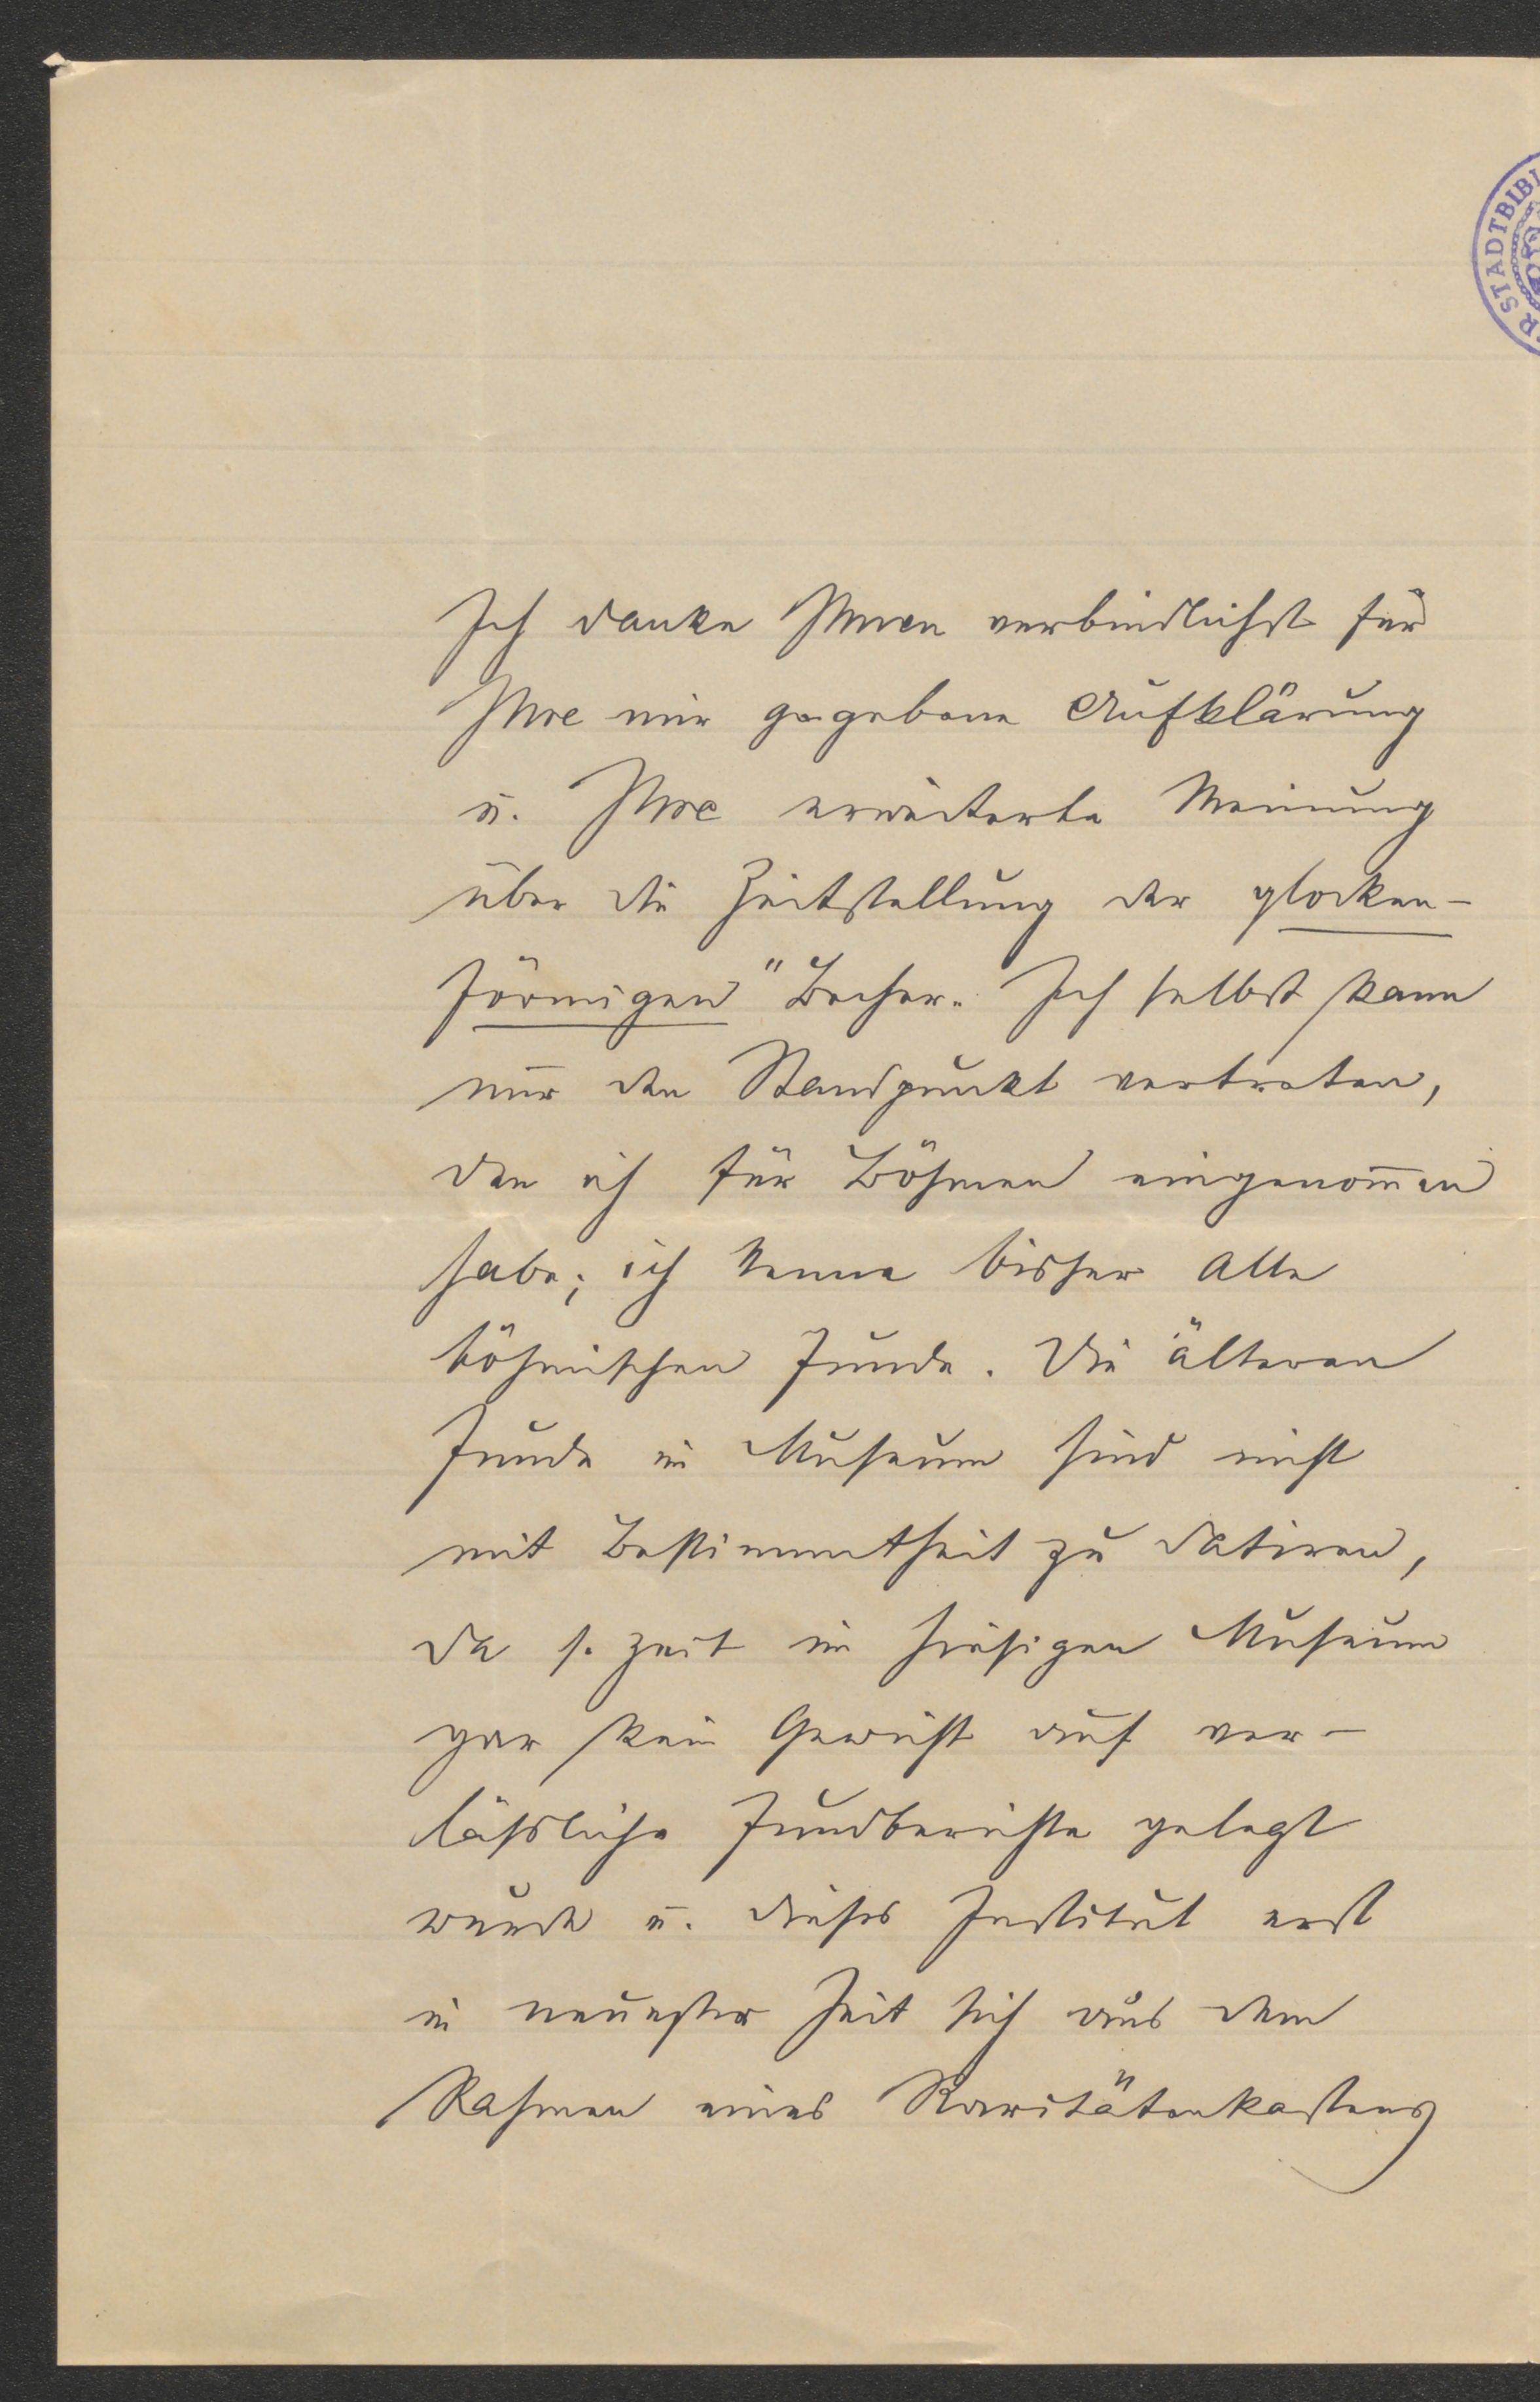 R STADTBIBL
Ich danke Ihnen verbindlichst für
Ihre mir gegebene Aufklärung
u. Ihre erweiterte Meinung
über die Zeitstellung der glocken-
förmigen" Becher. Ich selbst kann
nur den Standpunkt vertreten,
den ich für Böhmen eingenom̅en
habe; ich kenne bisher alle
böhmischen Funde. Die älteren
Funde im Museum sind nicht
mit Bestimmtheit zu datiren,
da s. Zeit im hiesigen Museum
gar kein Gewicht auf ver-
lässliche Fundberichte gelegt
wurde u. dieses Institut erst
in neuester Zeit sich aus dem
Rahmen eines Raritätenkastens